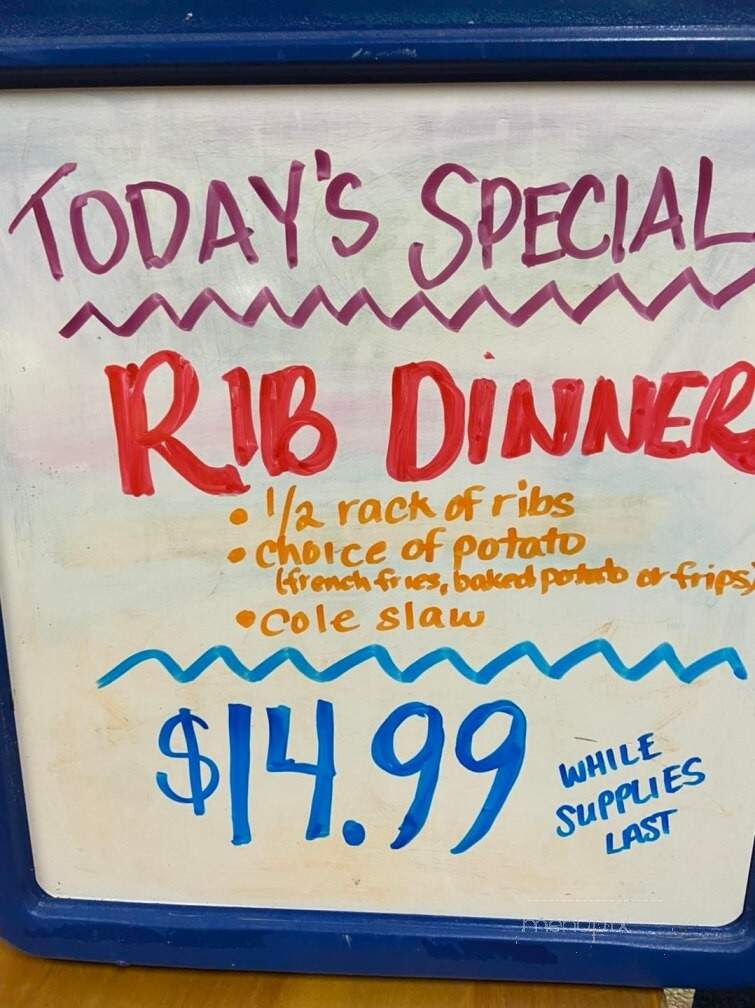 TODAY'S SPECIAL
RIB DINNER
• 1/2 rack of ribs
• choice of potato
(french fries, baked potato or frips)
• cole slaw
$14.99
WHILE
SUPPLIES
LAST
menupix